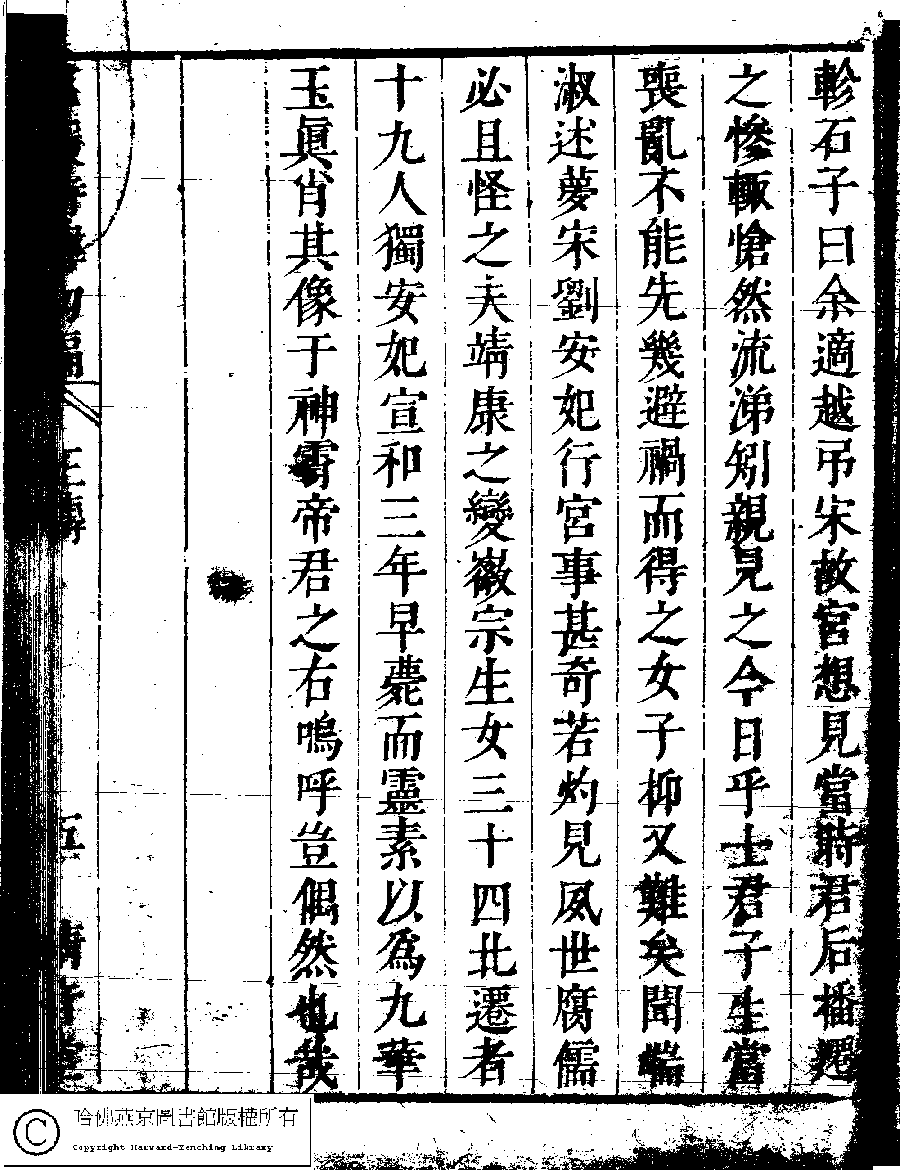 軫石子曰余適越吊宋故宮想見當時君后播遷
之慘輒愴然流涕矧親見之今日乎士君子生當
喪亂不能先幾避禍而得之女子抑又難矣聞端
淑述夢宋劉安妃行宮事甚奇若灼見夙世腐儒
必且怪之夫靖康之變徽宗生女三十四北遷者
十九人獨安妃宣和三年早薨而靈素以為九華
玉眞肖其像于神霄帝君之右嗚呼豈偶然也哉
五
哈佛燕京圖書館版權所有
Copyright Harvard-Yenching Library